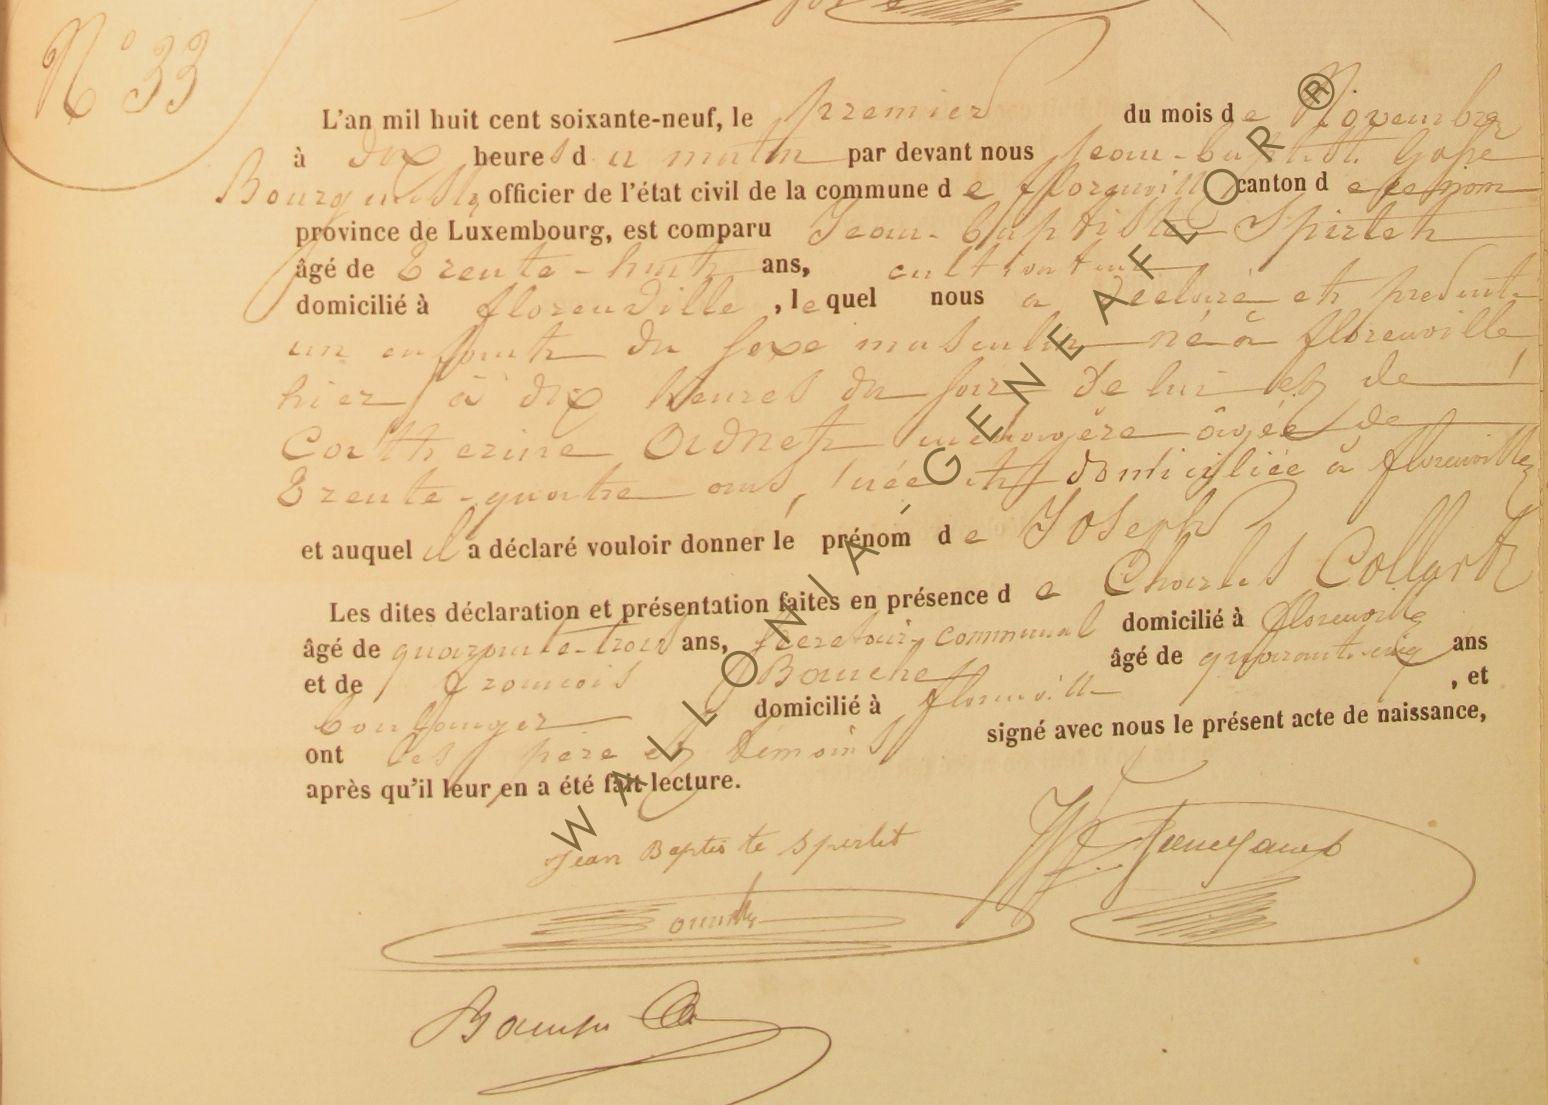 N° 33
L'an mil huit cent soixante-neuf, le premier du mois de Novembre
à dix heures du matin par devant nous Jean-baptiste
Bourgmestre officier de l'état civil de la commune de florenville canton de ce nom
province de Luxembourg, est comparu Jean-baptiste Spirlet
âgé de Trente-huit ans, cultivateur
domicilié à florenville, lequel nous a déclaré et présenté
un enfant du sexe masculin né à florenville
hier à dix heures du soir de lui et de
Catherine Ordnet ménagère âgée de
Trente-quatre ans, née et domiciliée à florenville
et auquel il a déclaré vouloir donner le prénom de Joseph
Les dites déclaration et présentation faites en présence de Charles Collart
âgé de quarante-trois ans, secrétaire communal domicilié à florenville
et de françois Bauche âgé de quarante-cinq ans
boulanger domicilié à florenville, et
ont les père et témoins signé avec nous le présent acte de naissance,
après qu'il leur en a été fait lecture.
Jean Baptiste Spirlet
WALLONIA, GENEAFLOR ®